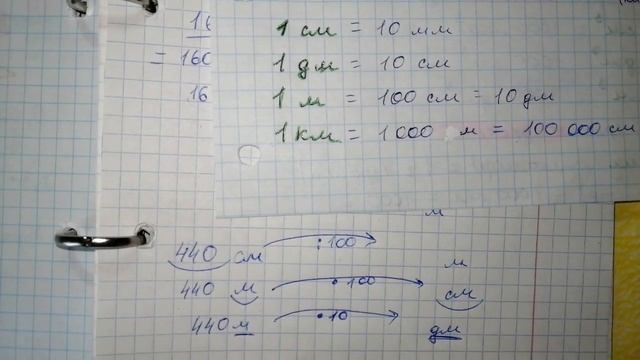 16
= 160
16
1 см = 10 мм
1 дм = 10 см
1 м = 100 см = 10 дм
1 км = 1 000 м = 100 000 см
м
440 см :100 м
440 м • 100 см
440 м • 10 дм